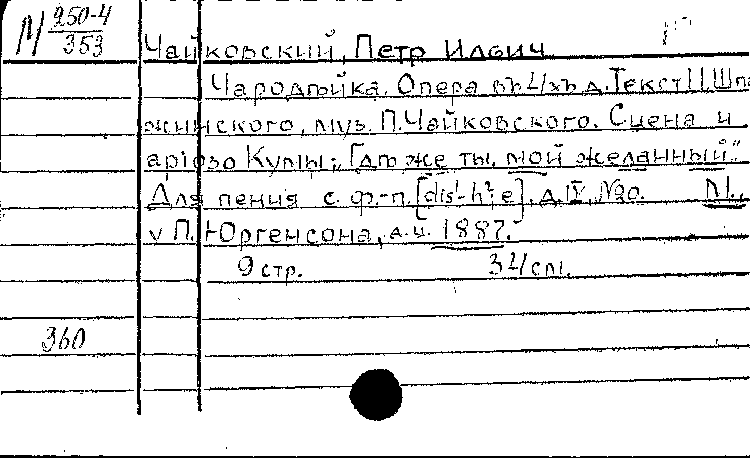 М 250-4
353
Чайковский, Петр Ильич
Чародѣйка. Опера въ 4хъ д. Текст И. Шпа
жинского, муз. П. Чайковского. Сцена и
аріозо Кумы: „Гдѣ же ты, мой желанный."
Для пения с ф.-п. [dis¹-h²; e], д. IV, № 20. М.,
у П. Юргенсона, д.ц. 1887.
9 стр. 34 см.
360